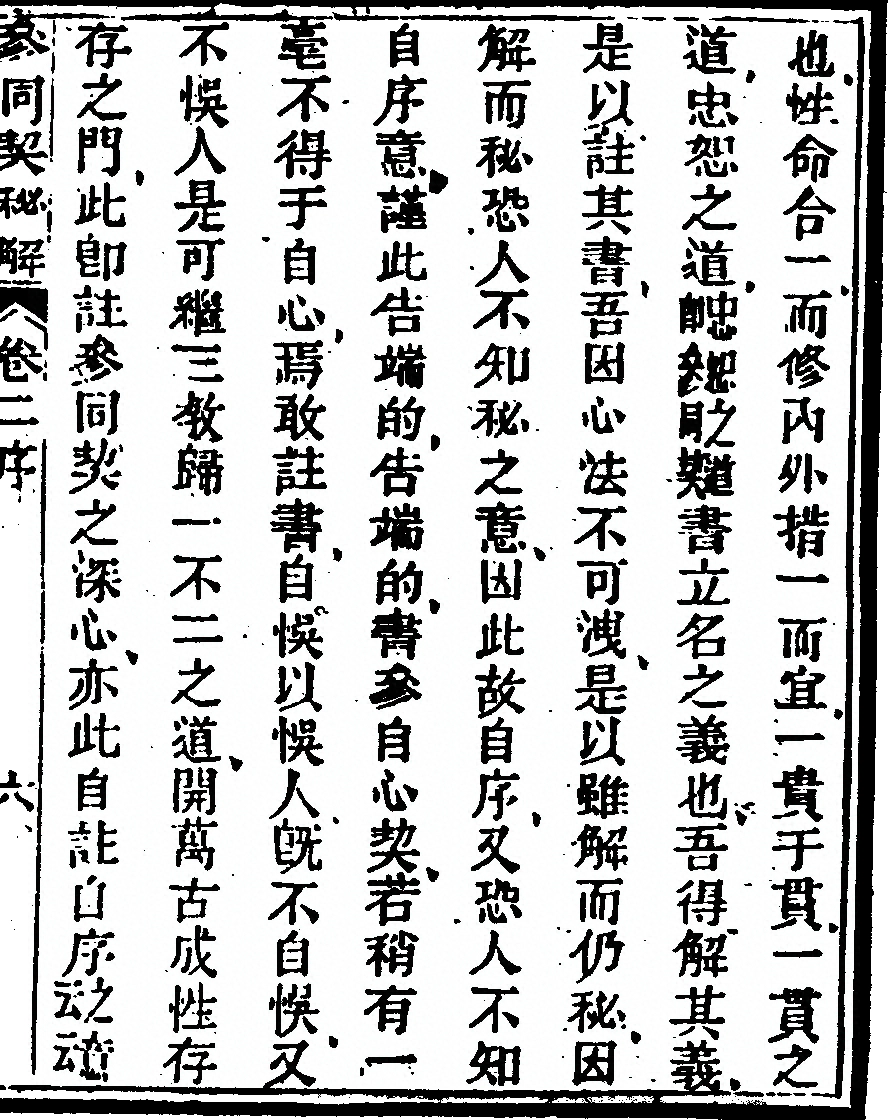 也性命合一而修內外措一而宜一貴于貫一貫之
道忠恕之道忠恕之道卽參同契書立名之義也吾得解其義
是以註其書吾因心法不可洩是以雖解而仍秘因
解而秘恐人不知秘之意因此故自序又恐人不知
自序意謹此告端的告端的書參自心契若稍有一
毫不得于自心焉敢註書自悞以悞人旣不自悞又
不悞人是可繼三教歸一不二之道開萬古成性存
存之門此卽註參同契之深心亦此自註自序之意云云
參同契秘解 卷二序 六